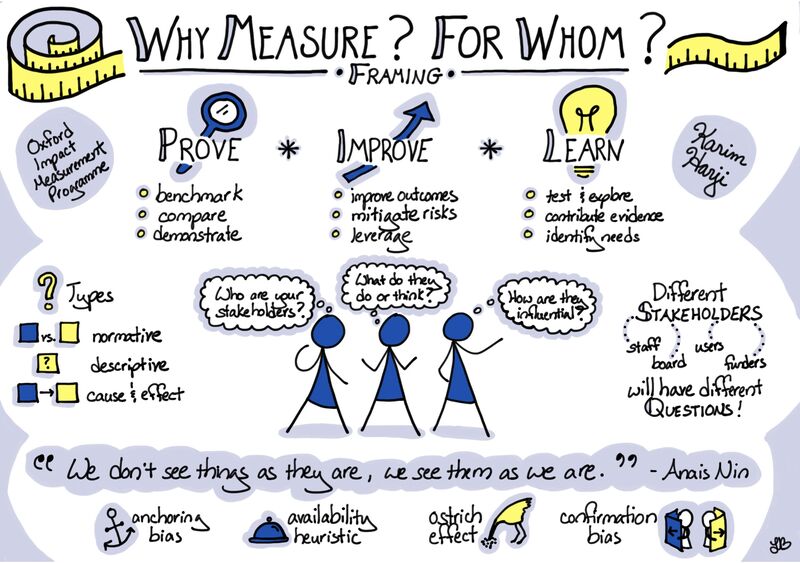 WHY MEASURE? FOR WHOM?
• FRAMING •
Oxford
Impact
Measurement
Programme
Karim
Harji
PROVE * IMPROVE * LEARN
benchmark
compare
demonstrate
improve outcomes
mitigate risks
leverage
test & explore
contribute evidence
identify needs
? Types
vs. normative
? descriptive
→ cause & effect
Who are your
stakeholders?
What do they
do or think?
How are they
influential?
Different
STAKEHOLDERS
staff
board
users
funders
will have different
QUESTIONS!
“We don't see things as they are, we see them as we are.” - Anais Nin
anchoring
bias
availability
heuristic
ostrich
effect
confirmation
bias